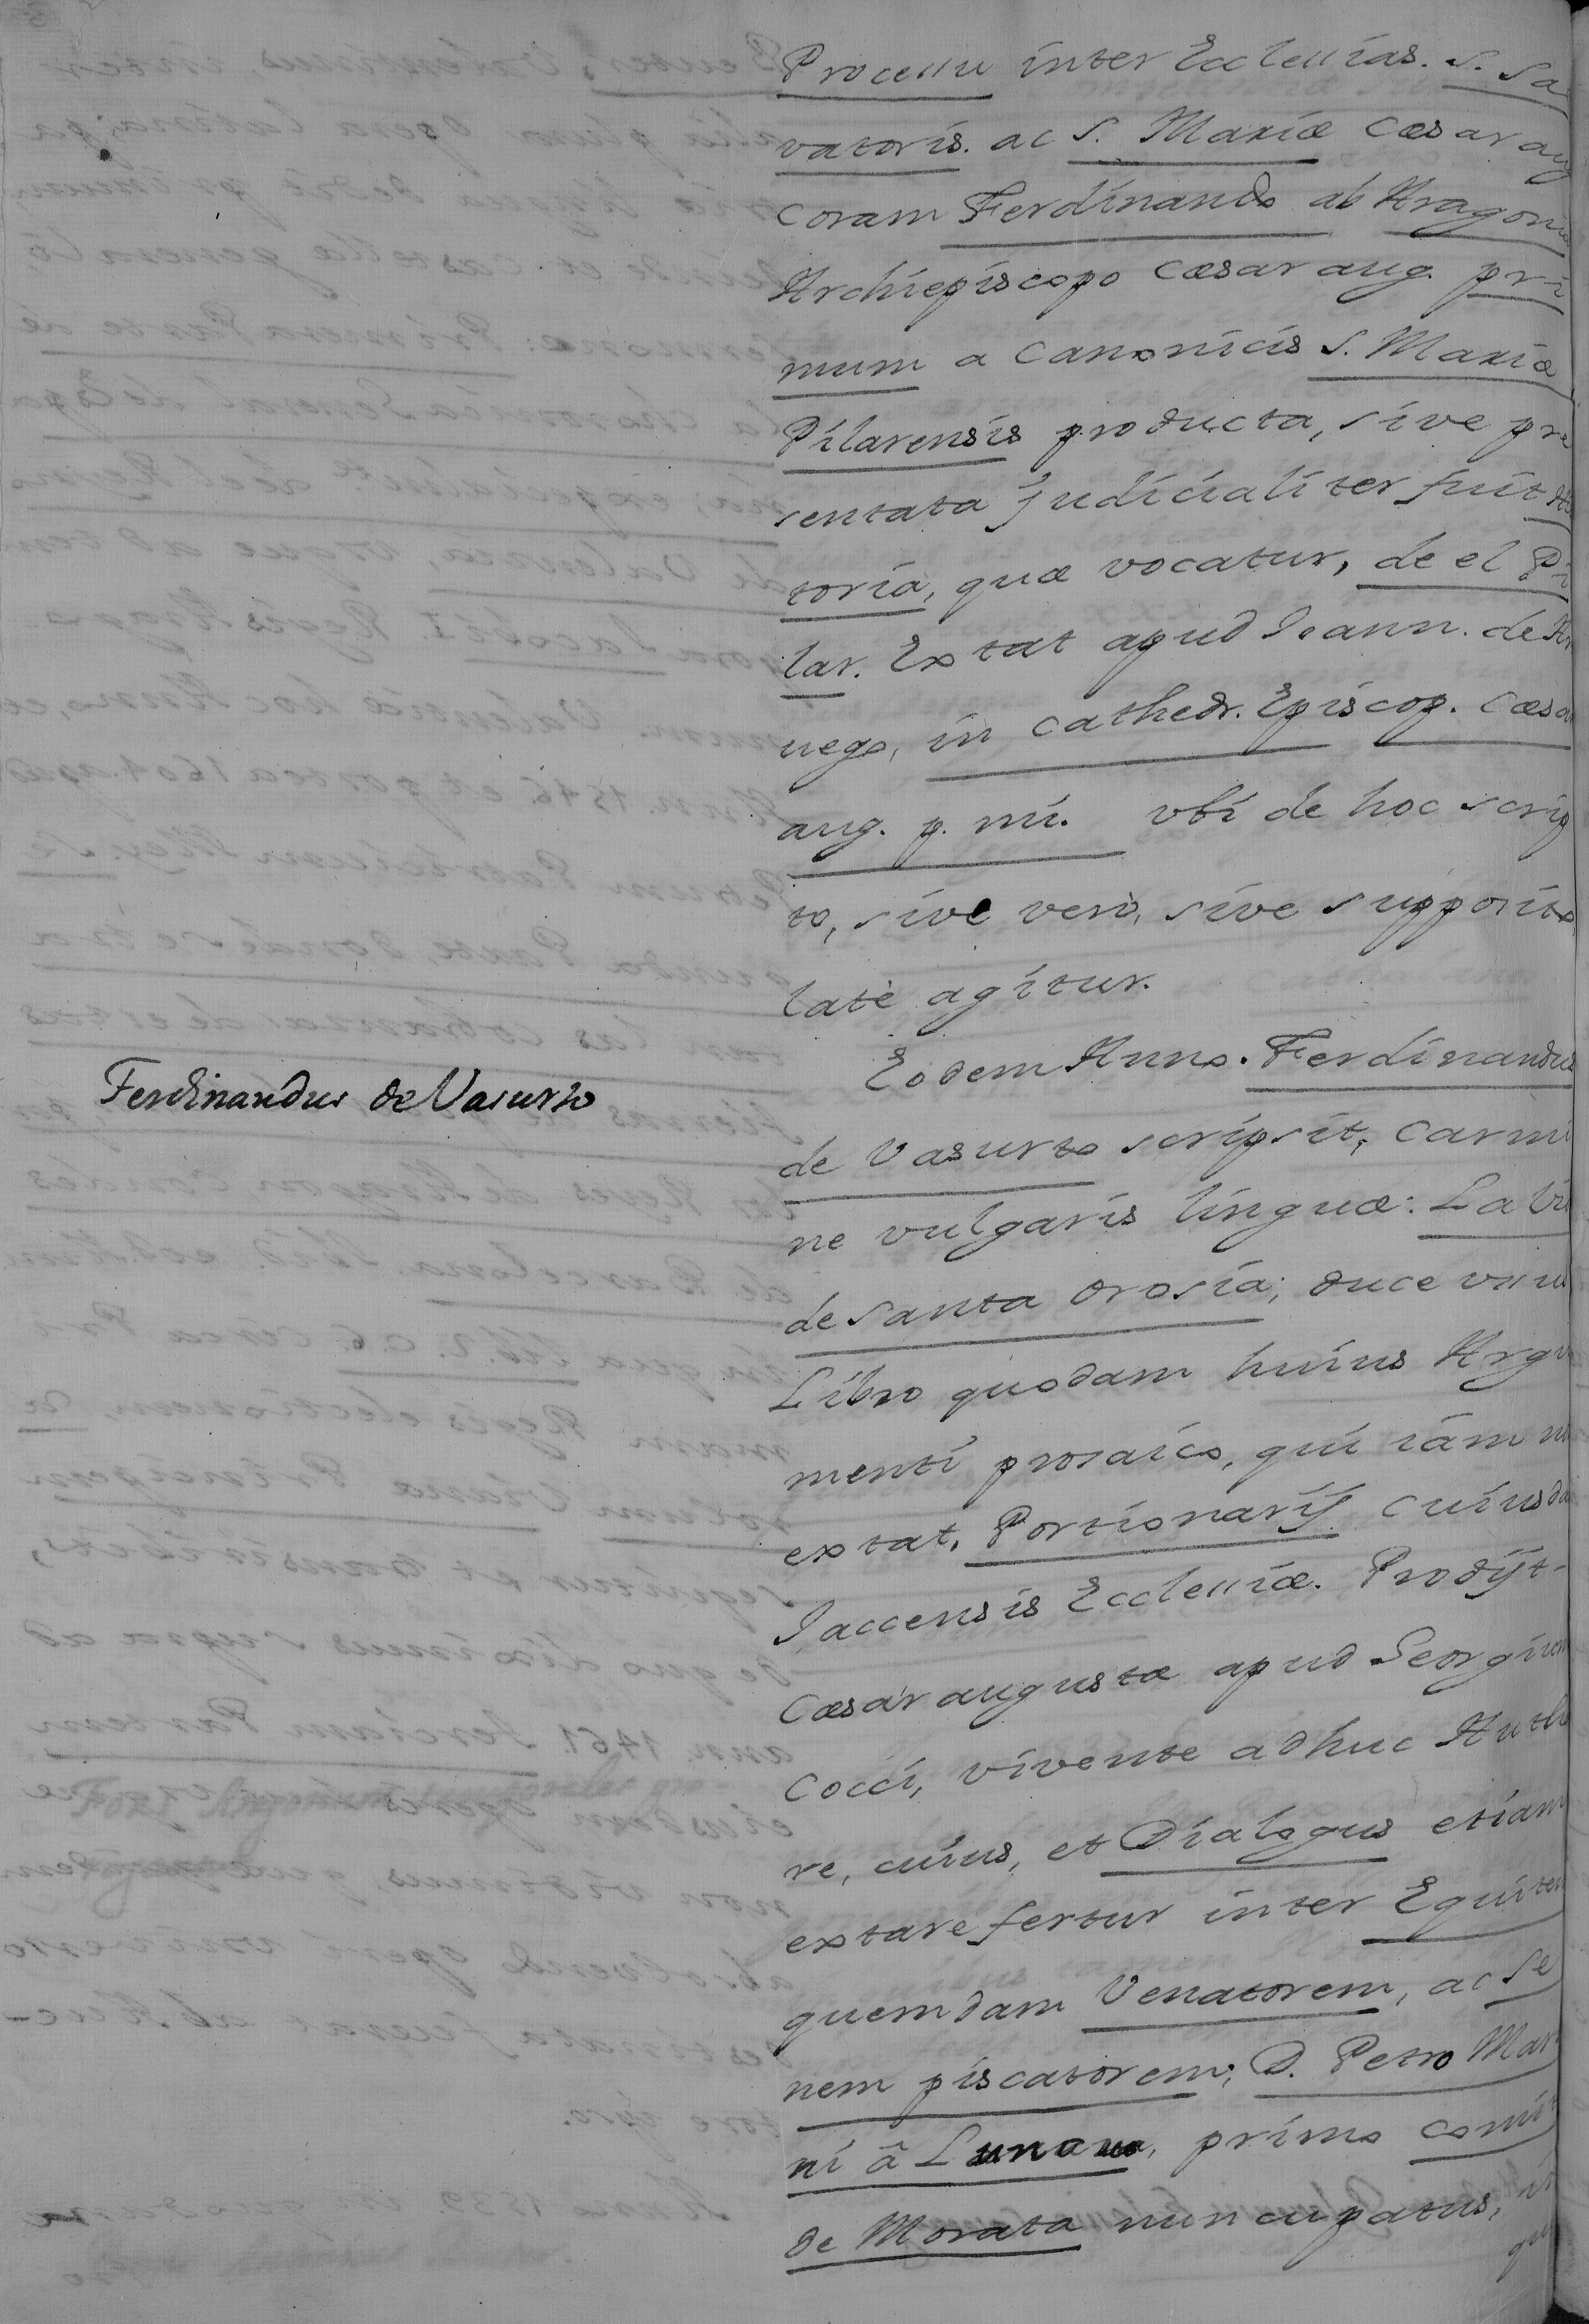 Processu inter Ecclessias. S. Sa
vatoris. ac S. Mariæ Cæsaraug
coram Ferdinando ab Aragonia
Archiepiscopo Cæsaraug. pri
mum a Canonicis S. Mariæ
Pilarensis producta, sive præ
sentata judicialiter fuit His
toria, quæ vocatur, de el Pi
lar. Extat apud Joann. de Ar
uego, in Cathedr. Episcop. Cæsar
aug. p. mi. vbi de hoc scrip
to, sive vero, sive supposito
latè agitur.
Ferdinandus de Vasurto
Eodem Anno. Ferdinandus
de Vasurto scripsit, carmi
ne vulgaris linguæ: La Vi
de Santa Orosia; duce vsus
Libro quodam huius Argu
menti prosaico, qui iàm no
extat, Portionarij cuiusda
Jaccensis Ecclessiæ. Prodijt
Cæsaraugustæ apud Georgium
Cocci, vivente adhuc Autho
re, cuius, et Dialogus etiam
extare fertur inter Equitem
quemdam Venatorem, ac Se
nem piscatorem; D. Petro Marti
ni â Luna, primo Comi
de Morata nuncupatus,